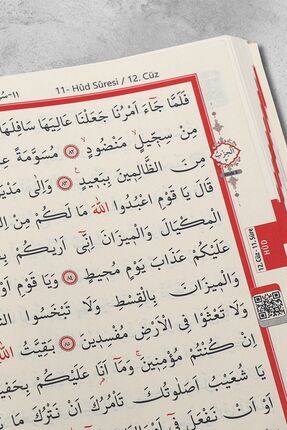 11- Hûd Sûresi / 12. Cüz
فَلَمَّا جَاءَ اَمْرُنَا جَعَلْنَا عَالِيَهَا سَافِلَهَا
مِنْ سِجّ۪يلٍ مَنْضُودٍ ﴿٨٢﴾ مُسَوَّمَةً
مِنَ الظَّالِم۪ينَ بِبَع۪يدٍ ﴿٨٣﴾ وَاِلٰى مَدْيَنَ
قَالَ يَا قَوْمِ اعْبُدُوا اللّٰهَ مَا لَكُمْ مِنْ
الْمِكْيَالَ وَالْم۪يزَانَ اِنّ۪ٓي اَرٰيكُمْ
عَلَيْكُمْ عَذَابَ يَوْمٍ مُح۪يطٍ ﴿٨٤﴾ وَيَا قَوْمِ
وَالْم۪يزَانَ بِالْقِسْطِ وَلَا تَبْخَسُوا
وَلَا تَعْثَوْا فِي الْاَرْضِ مُفْسِد۪ينَ ﴿٨٥﴾ بَقِيَّتُ اللّٰهِ
اِنْ كُنْتُمْ مُؤْمِن۪ينَ وَمَٓا اَنَا عَلَيْكُمْ
يَا شُعَيْبُ اَصَلٰوتُكَ تَأْمُرُكَ اَنْ نَتْرُكَ مَا
اَوْ اَنْ نَفْعَلَ ف۪ٓي
الحزب
12. Cüz 11. Sûre
HÛD